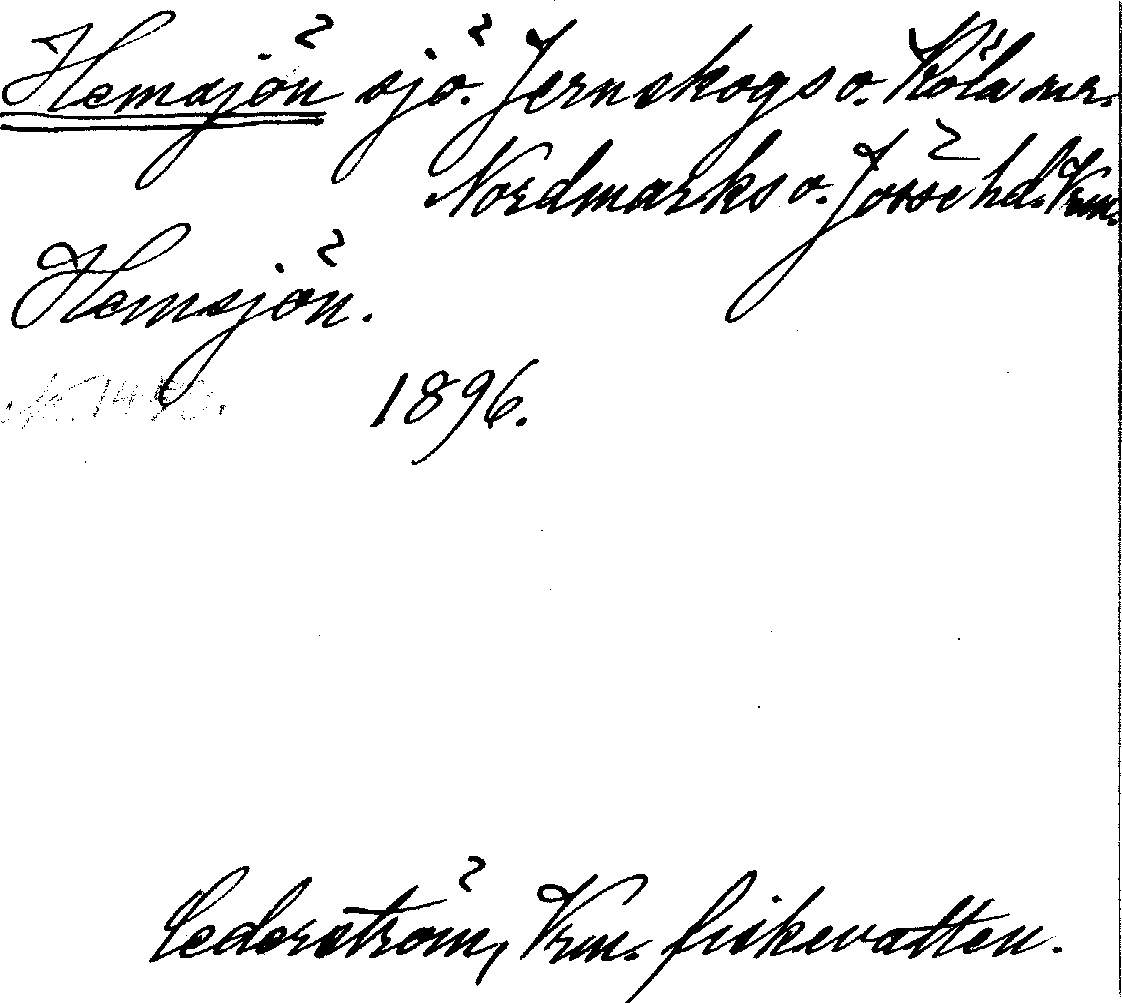 Hemsjön sjö. Jernskogs o. Köla snr.
Nordmarks o. Jösse hd. Vrm.
Hemsjön.
1896.
Cederström, Vrm. fiskevatten.